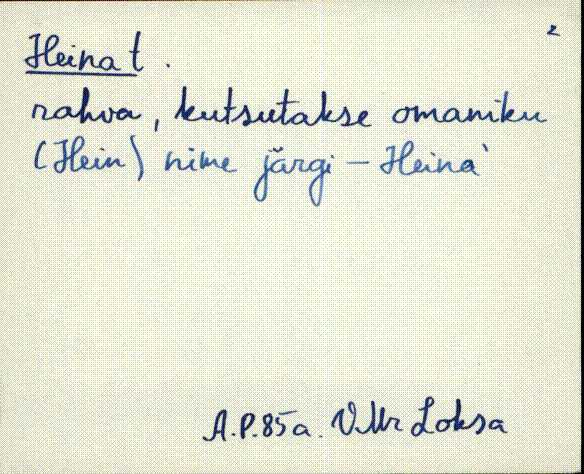 2
Heina t.
rahva, kutsutakse omaniku
(Hein) nime järgi - Heina`
A.P.85a. V.Mr Loksa